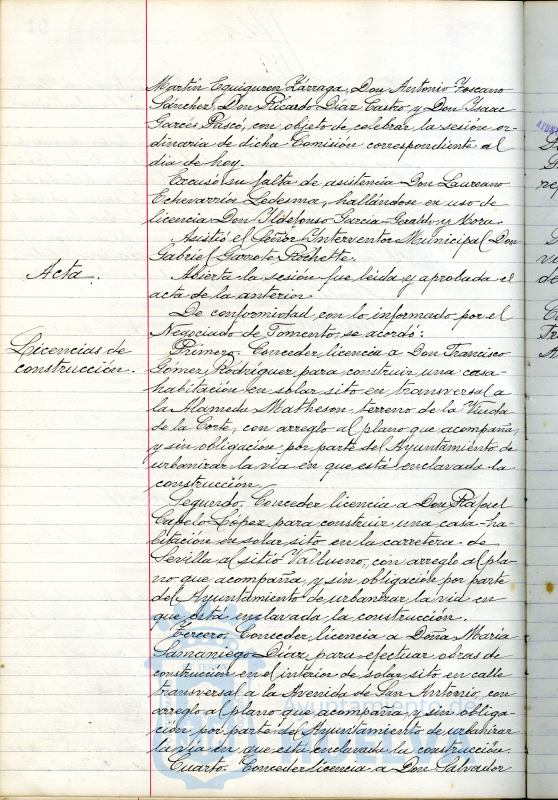 Martín Eguiguren Zárraga, Don Antonio Toscano
Sánchez, Don Ricardo Díaz Castro, y Don Isaac
Garcés Pascó, con objeto de celebrar la sesión or-
dinaria de dicha Comisión correspondiente al
dia de hoy.
Excusó su falta de asistencia Don Laureano
Echevarría Ledesma, hallándose en uso de
licencia Don Ildefonso García-Geraldy y Mora.
Asistió el Señor Interventor Municipal Don
Gabriel Rochette.
Acta.
Abierta la sesión fue leida y aprobada el
acta de la anterior.
De conformidad con lo informado por el
Negociado de Fomento, se acordó:
Licencias de
construcción.
Primero. Conceder licencia a Don Francisco
Gómez Rodríguez para construir una casa-
habitación en solar sito en transversal a
la Alameda Matheson, terreno de la Viuda
de la Corte, con arreglo al plano que acompaña,
y sin obligación por parte del Ayuntamiento de
urbanizar la via en que está enclavada la
construcción.
Segundo. Conceder licencia a Don Rafael
Capelo López para construir una casa-ha-
bitación en solar sito en la carretera de
Sevilla al sitio Vallueno, con arreglo al pla-
no que acompaña, y sin obligación por parte
del Ayuntamiento de urbanizar la via en
que está enclavada la construcción.
Tercero. Conceder licencia a Doña María
Samaniego Díaz, para efectuar obras de
construcción en el interior de solar sito en calle
transversal a la Avenida de San Antonio, con
arreglo al plano que acompaña, y sin obliga-
ción por parte del Ayuntamiento de urbanizar
la via en que está enclavada la construcción.
Cuarto. Conceder licencia a Don Salvador
Ayuntamiento de
HUELVA